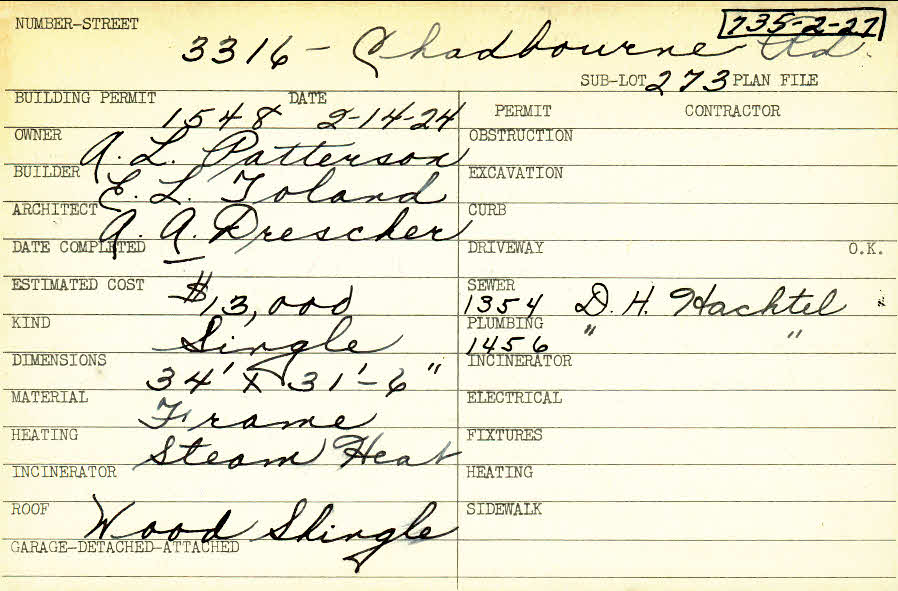 NUMBER-STREET 735-2-27
3316 - Chadbourne Rd.
SUB-LOT 273 PLAN FILE
BUILDING PERMIT 1548 DATE 2-14-24
PERMIT CONTRACTOR
OWNER A. L. Patterson
OBSTRUCTION
BUILDER E. L. Toland
EXCAVATION
ARCHITECT A. A. Drescher
CURB
DATE COMPLETED —
DRIVEWAY O.K.
ESTIMATED COST $13,000
SEWER 1354 D. H. Hachtel "
KIND Single
PLUMBING 1456 " "
DIMENSIONS 34' X 31'-6"
INCINERATOR
MATERIAL Frame
ELECTRICAL
HEATING Steam Heat
FIXTURES
INCINERATOR
HEATING
ROOF Wood Shingle
SIDEWALK
GARAGE-DETACHED-ATTACHED